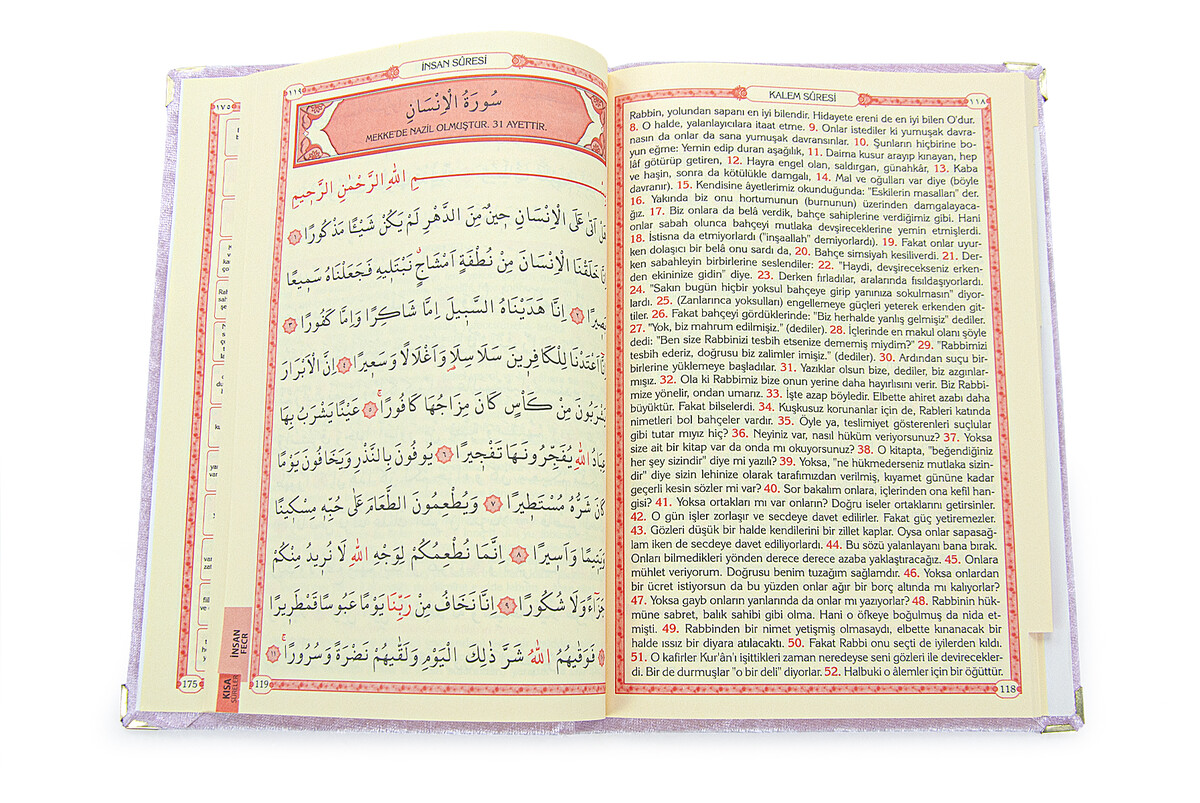 İNSAN SÛRESİ
١١٩
سُورَةُ الْاِنْسَانِ
MEKKE'DE NAZİL OLMUŞTUR. 31 AYETTİR.
اللّٰهِ الرَّحْمٰنِ الرَّحٖيمِ
اَتٰى عَلَى الْاِنْسَانِ حٖينٌ مِنَ الدَّهْرِ لَمْ يَكُنْ شَيْـًٔا مَذْكُورًا ﴿١﴾
خَلَقْنَا الْاِنْسَانَ مِنْ نُطْفَةٍ اَمْشَاجٍ نَبْتَلٖيهِ فَجَعَلْنَاهُ سَمٖيعًا
﴿٢﴾ اِنَّا هَدَيْنَاهُ السَّبٖيلَ اِمَّا شَاكِرًا وَاِمَّا كَفُورًا ﴿٣﴾
اَعْتَدْنَا لِلْكَافِرٖينَ سَلَاسِلَا۬ وَاَغْلَالًا وَسَعٖيرًا ﴿٤﴾ اِنَّ الْاَبْرَارَ
يَشْرَبُونَ مِنْ كَأْسٍ كَانَ مِزَاجُهَا كَافُورًاۚ ﴿٥﴾ عَيْنًا يَشْرَبُ بِهَا
عِبَادُ اللّٰهِ يُفَجِّرُونَهَا تَفْجٖيرًا ﴿٦﴾ يُوفُونَ بِالنَّذْرِ وَيَخَافُونَ يَوْمًا
كَانَ شَرُّهُ مُسْتَطٖيرًا ﴿٧﴾ وَيُطْعِمُونَ الطَّعَامَ عَلٰى حُبِّهٖ مِسْكٖينًا
وَيَتٖيمًا وَاَسٖيرًا ﴿٨﴾ اِنَّمَا نُطْعِمُكُمْ لِوَجْهِ اللّٰهِ لَا نُرٖيدُ مِنْكُمْ
جَزَٓاءً وَلَا شُكُورًا ﴿٩﴾ اِنَّا نَخَافُ مِنْ رَبِّنَا يَوْمًا عَبُوسًا قَمْطَرٖيرًا
فَوَقٰيهُمُ اللّٰهُ شَرَّ ذٰلِكَ الْيَوْمِ وَلَقّٰيهُمْ نَضْرَةً وَسُرُورًاۚ ﴿١١﴾
119
İNSAN
FECR
KISA
SÛRELER
١٧٥
175
KALEM SÛRESİ
١١٨
Rabbin, yolundan sapanı en iyi bilendir. Hidayete ereni de en iyi bilen O'dur.
8. O halde, yalanlayıcılara itaat etme. 9. Onlar istediler ki yumuşak davra-
nasın da onlar da sana yumuşak davransınlar. 10. Şunların hiçbirine bo-
yun eğme: Yemin edip duran aşağılık, 11. Daima kusur arayıp kınayan, hep
lâf götürüp getiren, 12. Hayra engel olan, saldırgan, günahkâr, 13. Kaba
ve haşin, sonra da kötülükle damgalı, 14. Mal ve oğulları var diye (böyle
davranır). 15. Kendisine âyetlerimiz okunduğunda: "Eskilerin masalları" der.
16. Yakında biz onu hortumunun (burnunun) üzerinden damgalayaca-
ğız. 17. Biz onlara da belâ verdik, bahçe sahiplerine verdiğimiz gibi. Hani
onlar sabah olunca bahçeyi mutlaka devşireceklerine yemin etmişlerdi.
18. İstisna da etmiyorlardı ("inşaallah" demiyorlardı). 19. Fakat onlar uyur-
ken dolaşıcı bir belâ onu sardı da, 20. Bahçe simsiyah kesiliverdi. 21. Der-
ken sabahleyin birbirlerine seslendiler: 22. "Haydi, devşirecekseniz erken-
den ekininize gidin" diye. 23. Derken fırladılar, aralarında fısıldaşıyorlardı.
24. "Sakın bugün hiçbir yoksul bahçeye girip yanınıza sokulmasın" diyor-
lardı. 25. (Zanlarınca yoksulları) engellemeye güçleri yeterek erkenden git-
tiler. 26. Fakat bahçeyi gördüklerinde: "Biz herhalde yanlış gelmişiz" dediler.
27. "Yok, biz mahrum edilmişiz." (dediler). 28. İçlerinde en makul olanı şöyle
dedi: "Ben size Rabbinizi tesbih etsenize dememiş miydim?" 29. "Rabbimizi
tesbih ederiz, doğrusu biz zalimler imişiz." (dediler). 30. Ardından suçu bir-
birlerine yüklemeye başladılar. 31. Yazıklar olsun bize, dediler, biz azgınlar-
mışız. 32. Ola ki Rabbimiz bize onun yerine daha hayırlısını verir. Biz Rabbi-
mize yönelir, ondan umarız. 33. İşte azap böyledir. Elbette ahiret azabı daha
büyüktür. Fakat bilselerdi. 34. Kuşkusuz korunanlar için de, Rableri katında
nimetleri bol bahçeler vardır. 35. Öyle ya, teslimiyet gösterenleri suçlular
gibi tutar mıyız hiç? 36. Neyiniz var, nasıl hüküm veriyorsunuz? 37. Yoksa
size ait bir kitap var da onda mı okuyorsunuz? 38. O kitapta, "beğendiğiniz
her şey sizindir" diye mi yazılı? 39. Yoksa, "ne hükmederseniz mutlaka sizin-
dir" diye sizin lehinize olarak tarafımızdan verilmiş, kıyamet gününe kadar
geçerli kesin sözler mi var? 40. Sor bakalım onlara, içlerinden ona kefil han-
gisi? 41. Yoksa ortakları mı var onların? Doğru iseler ortaklarını getirsinler.
42. O gün işler zorlaşır ve secdeye davet edilirler. Fakat güç yetiremezler.
43. Gözleri düşük bir halde kendilerini bir zillet kaplar. Oysa onlar sapasağ-
lam iken de secdeye davet ediliyorlardı. 44. Bu sözü yalanlayanı bana bırak.
Onları bilmedikleri yönden derece derece azaba yaklaştıracağız. 45. Onlara
mühlet veriyorum. Doğrusu benim tuzağım sağlamdır. 46. Yoksa onlardan
bir ücret istiyorsun da bu yüzden onlar ağır bir borç altında mı kalıyorlar?
47. Yoksa gayb onların yanlarında da onlar mı yazıyorlar? 48. Rabbinin hük-
müne sabret, balık sahibi gibi olma. Hani o öfkeye boğulmuş da nida et-
mişti. 49. Rabbinden bir nimet yetişmiş olmasaydı, elbette kınanacak bir
halde ıssız bir diyara atılacaktı. 50. Fakat Rabbi onu seçti de iyilerden kıldı.
51. O kafirler Kur'ân'ı işittikleri zaman neredeyse seni gözleri ile devirecekler-
di. Bir de durmuşlar "o bir deli" diyorlar. 52. Halbuki o âlemler için bir öğüttür.
118